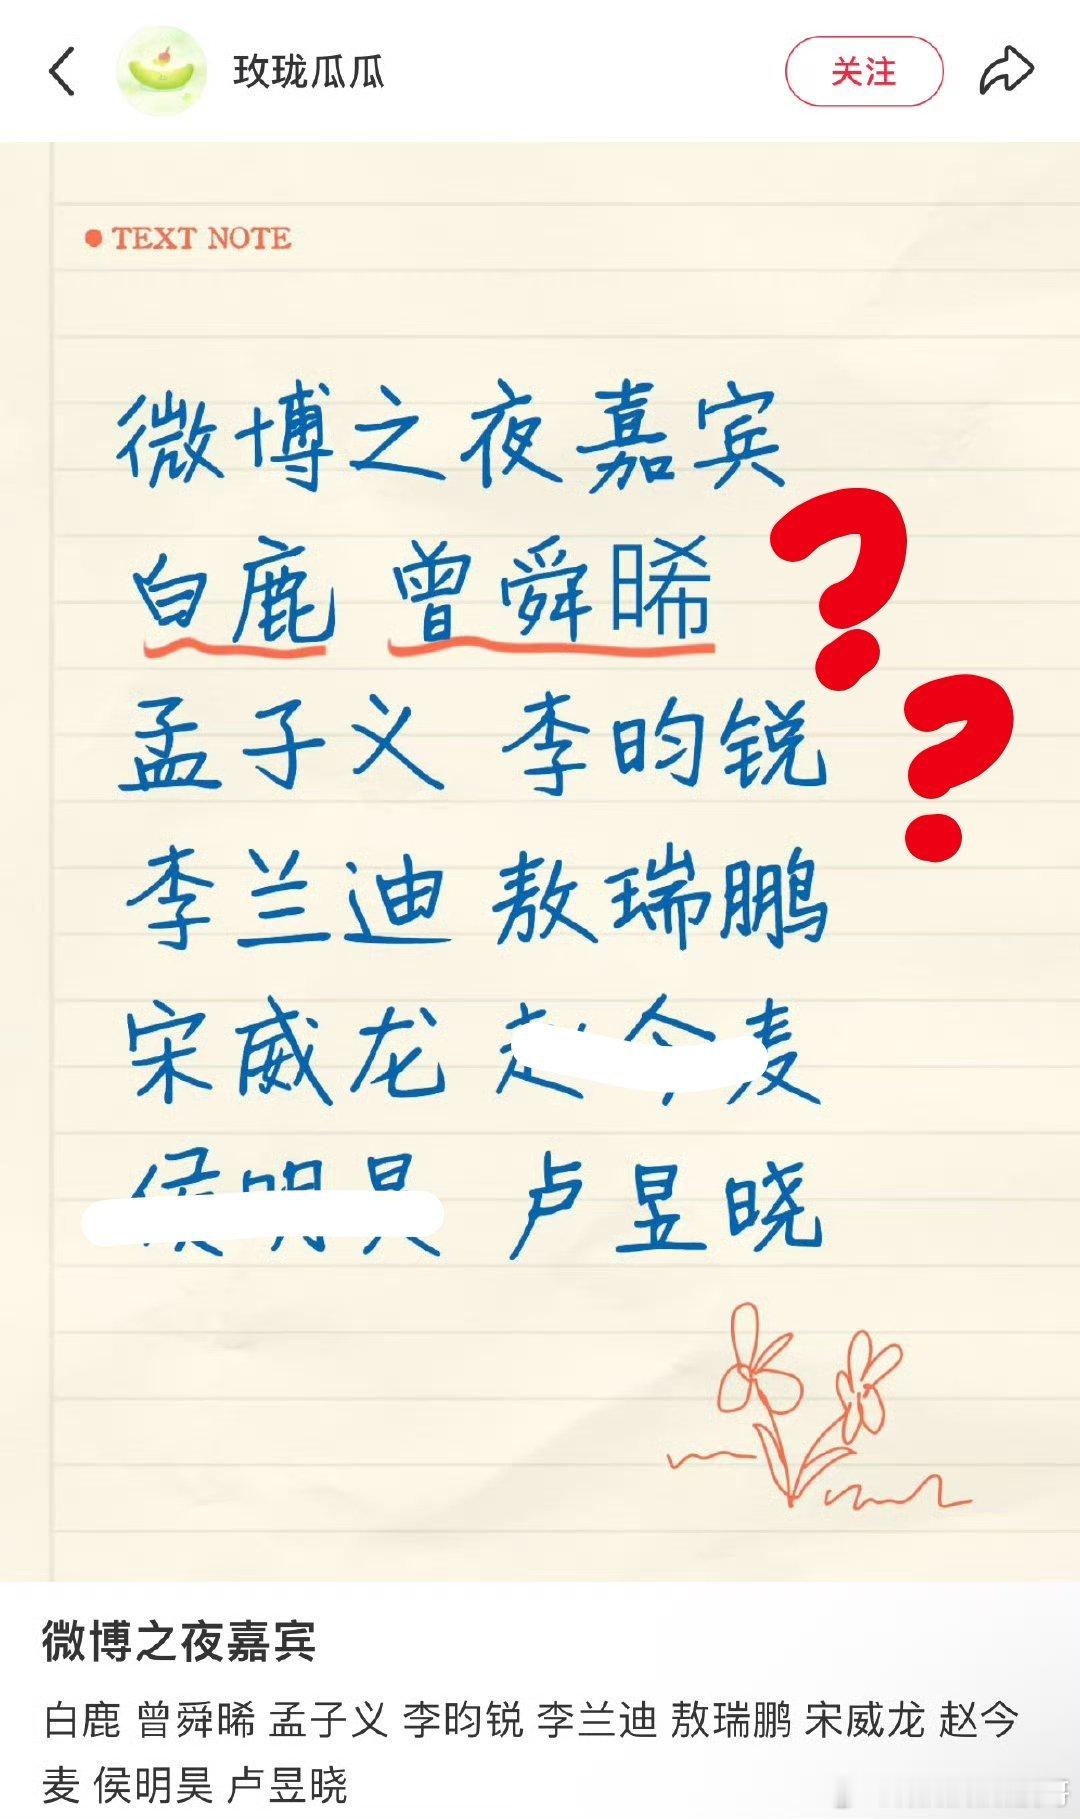 玫珑瓜瓜
关注
TEXT NOTE
微博之夜嘉宾
白鹿 曾舜晞
孟子义 李昀锐
李兰迪 敖瑞鹏
宋威龙 赵今麦
侯明昊 卢昱晓
微博之夜嘉宾
白鹿 曾舜晞 孟子义 李昀锐 李兰迪 敖瑞鹏 宋威龙 赵今
麦 侯明昊 卢昱晓